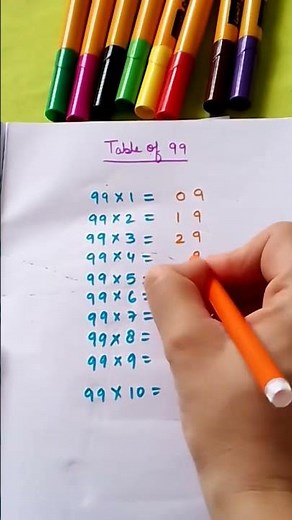 Table of 99
99 × 1 = 0 9
99 × 2 = 1 9
99 × 3 = 2 9
99 × 4 =
99 × 5 =
99 × 6 =
99 × 7 =
99 × 8 =
99 × 9 =
99 × 10 =